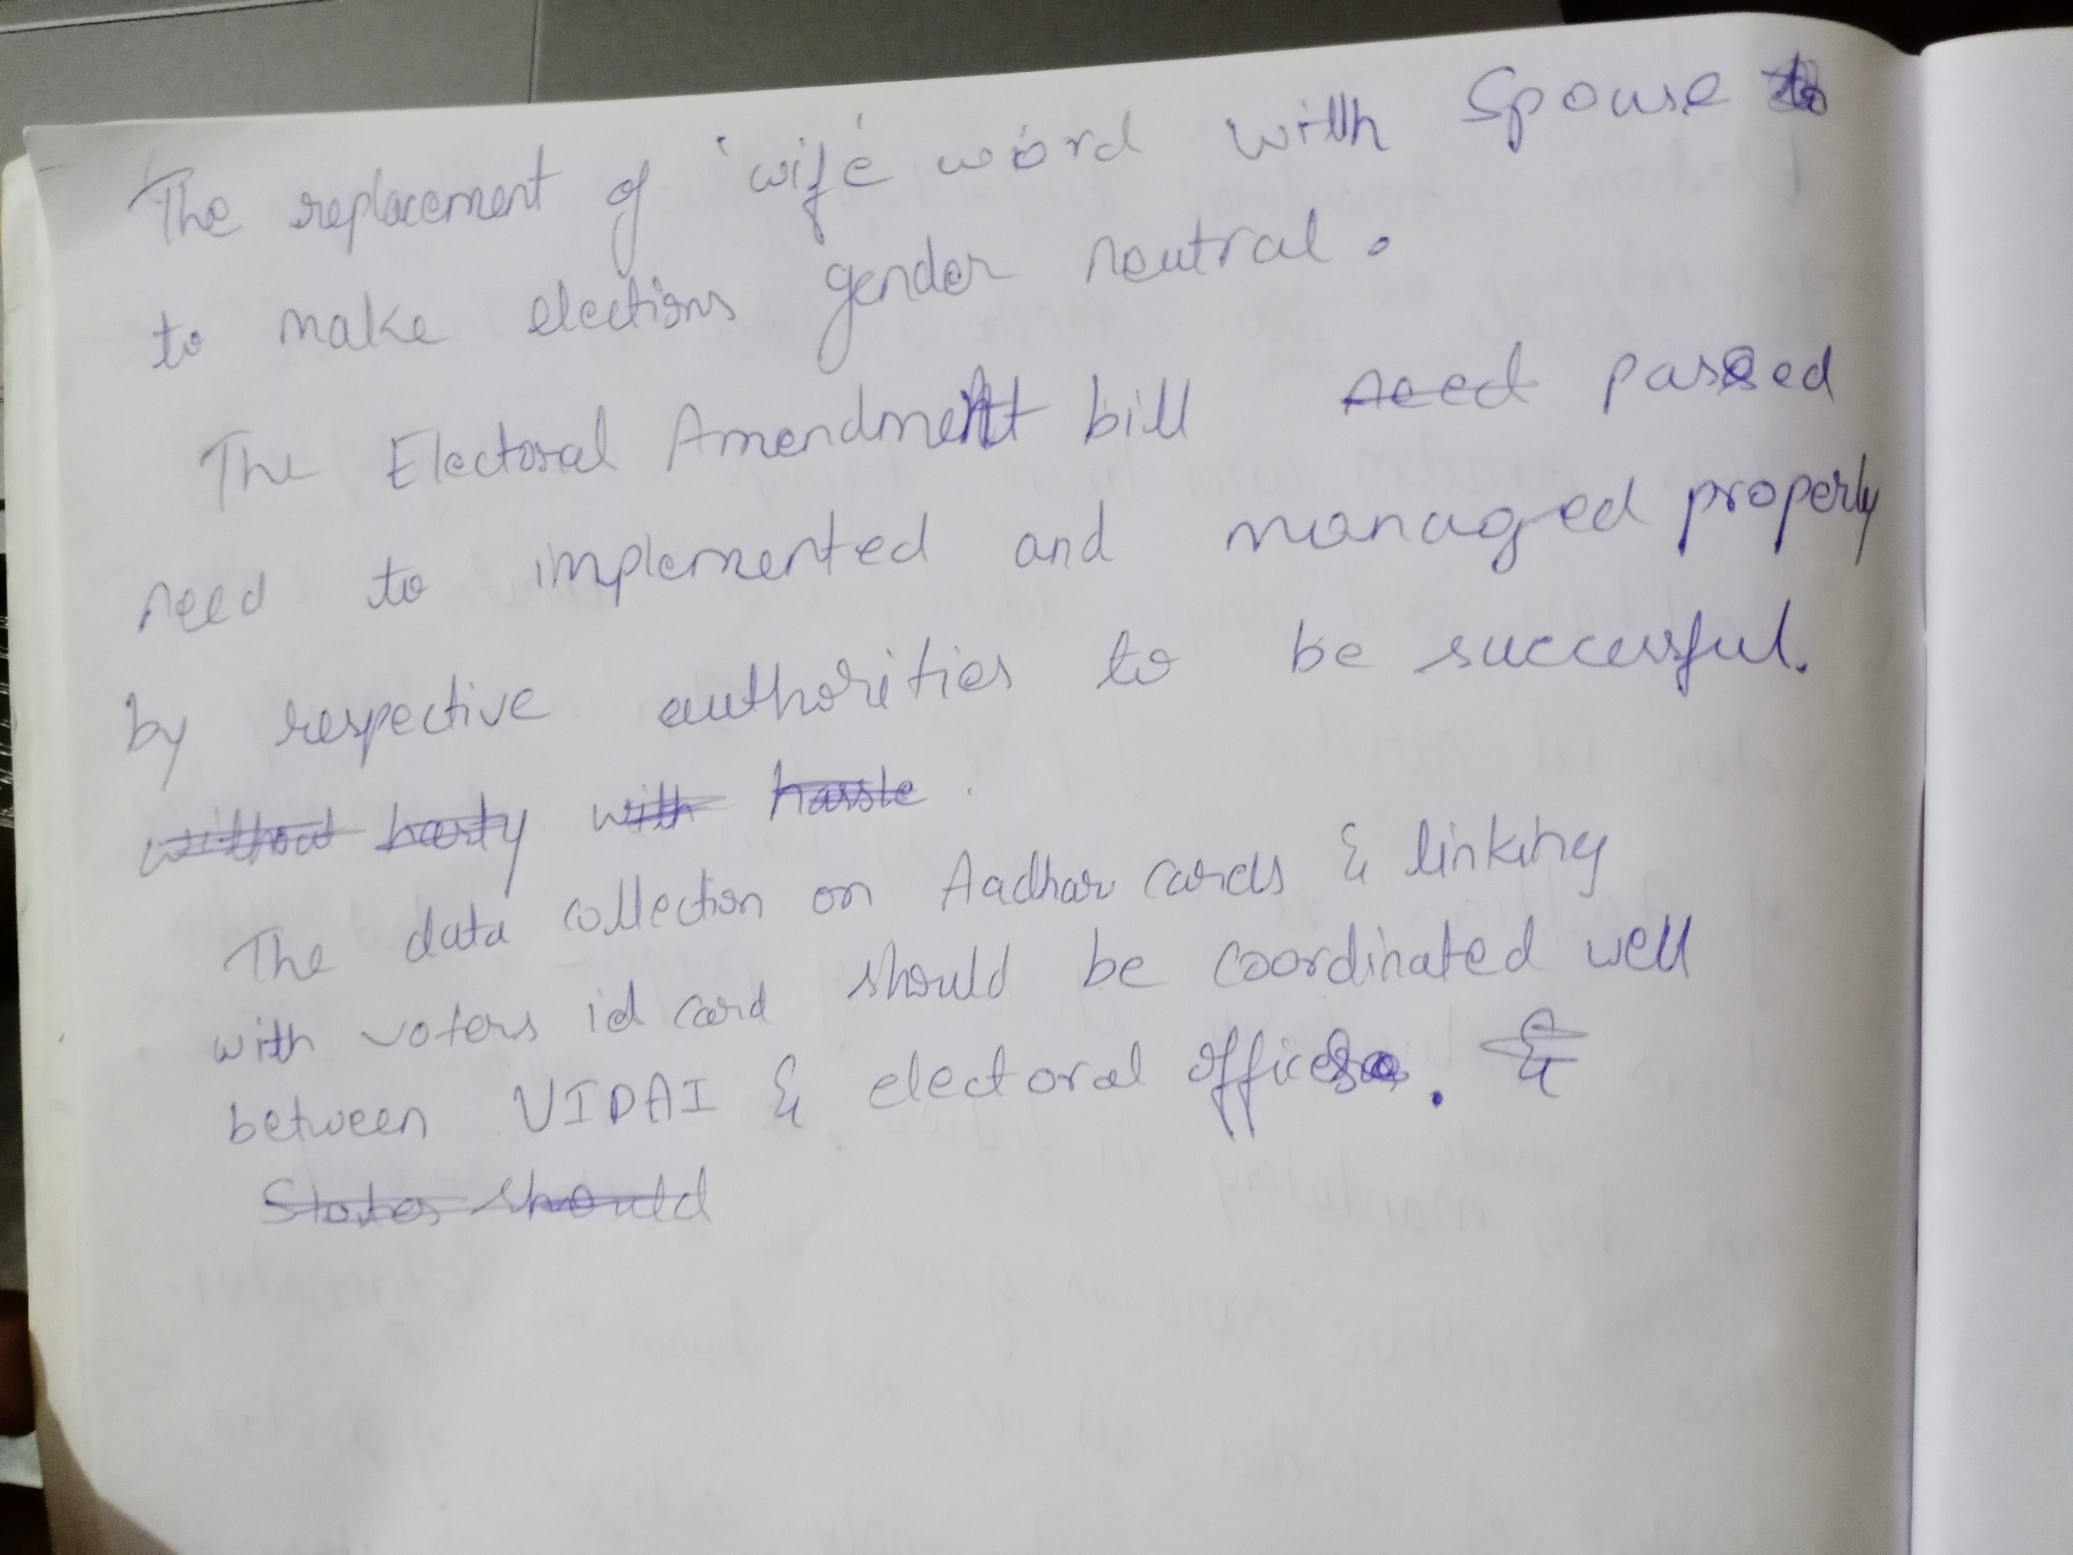 The replacement of 'wife' word with Spouse
to make elections gender neutral.
The Electoral Amendment bill need passed
need to implemented and managed properly
by respective authorities to be successful.
without hasty with hassle.
The data collection on Aadhar cards & linking
with voters id card should be coordinated well
between UIDAI & electoral offices. &
States should